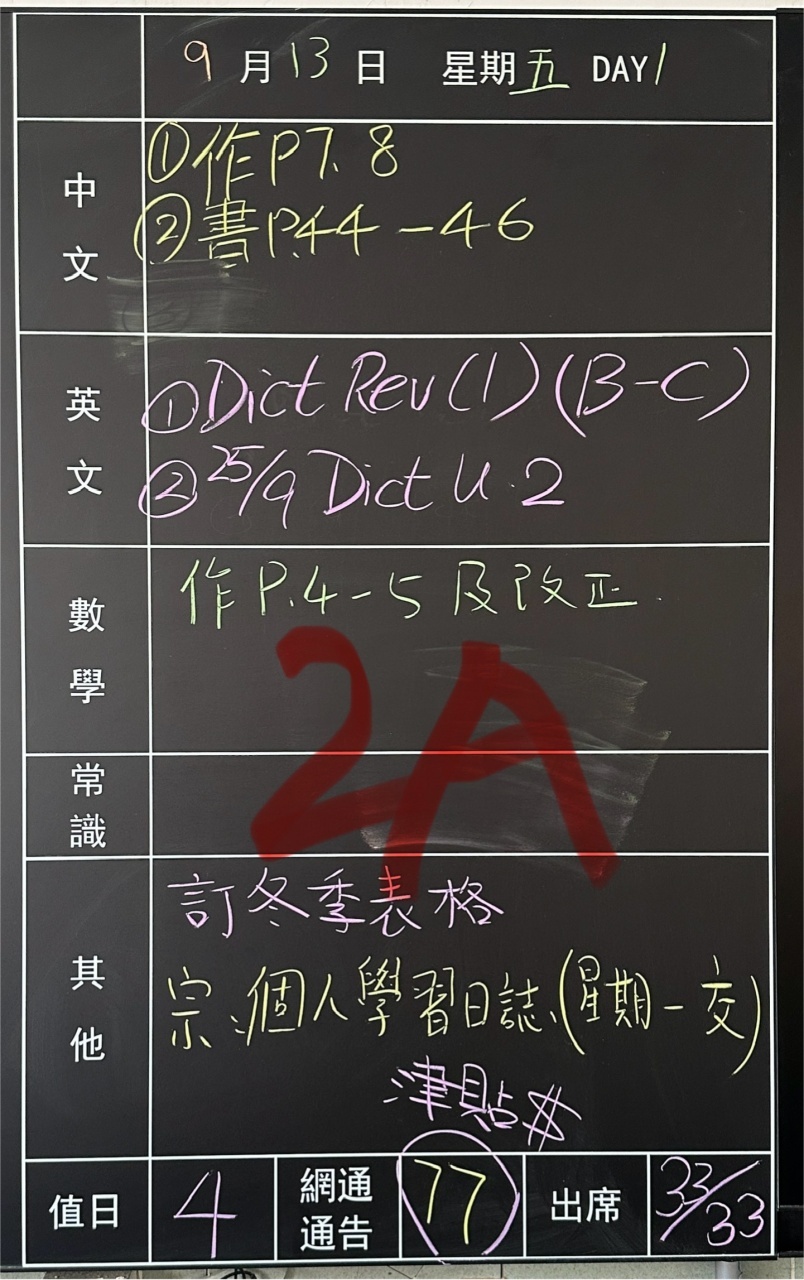 9月13日 星期五 DAY 1
中文
①作P7、8
②書P.44-46
英文
①Dict Rev(1)(B-C)
②25/9 Dict U.2
數學
作P.4-5及改正
2A
常識
其他
訂冬季表格
宗:個人學習日誌、(星期一交)
津貼$
值日 4 網通通告 77 出席 33/33